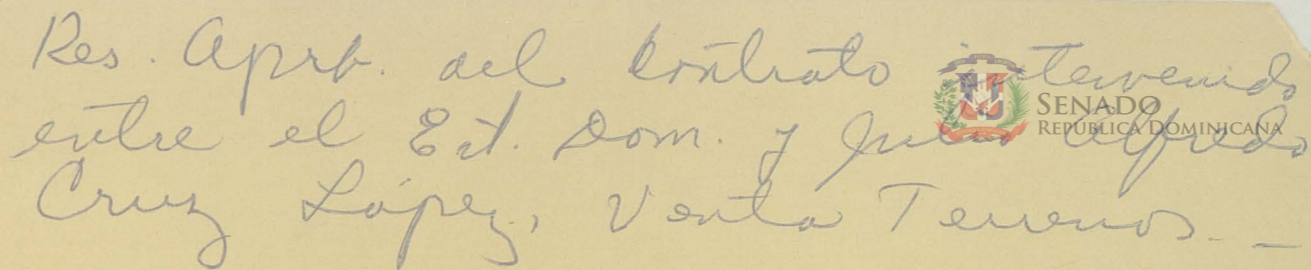 Res. Aprb. del Contrato intervenido
entre el Est. Dom. y Julio Alfredo
Cruz López, Venta Terrenos. _
SENADO
REPÚBLICA DOMINICANA